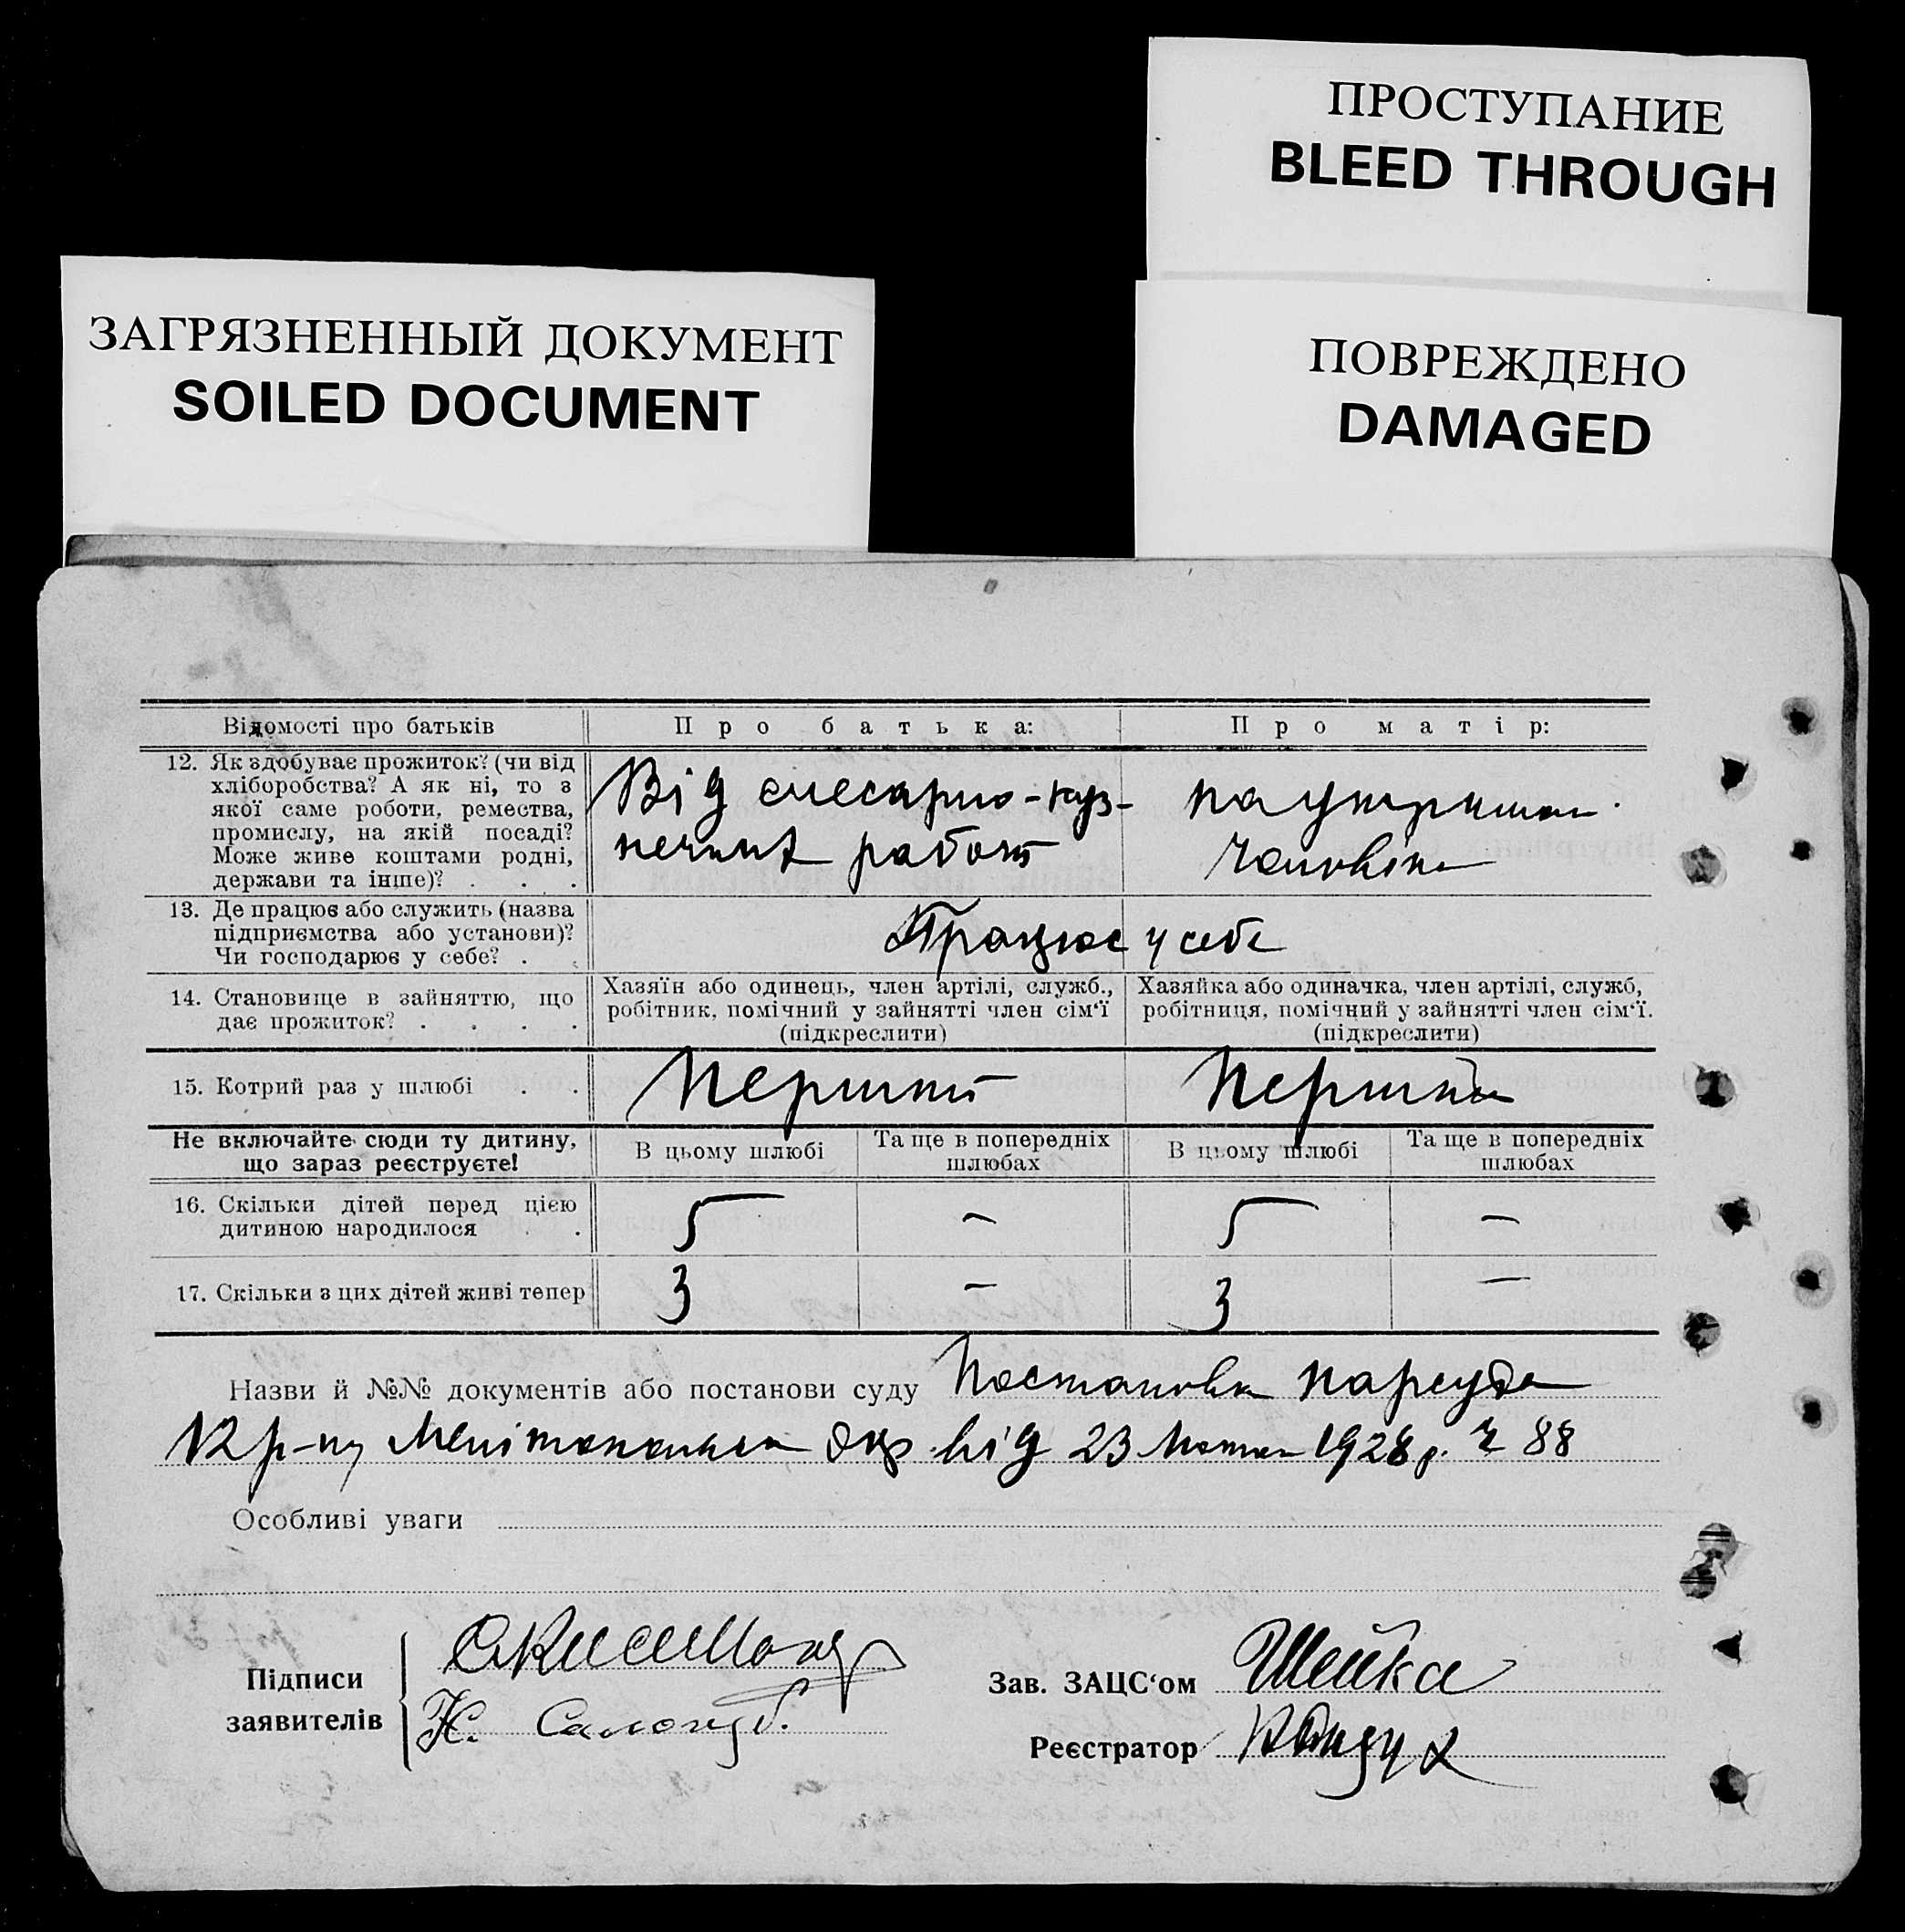 ПРОСТУПАНИЕ
BLEED THROUGH
ЗАГРЯЗНЕННЫЙ ДОКУМЕНТ
SOILED DOCUMENT
ПОВРЕЖДЕНО
DAMAGED
Відомості про батьків
Про батька:
Про матір:
12. Як здобуває прожиток? (чи від
хліборобства? А як ні, то з
якої саме роботи, ремества,
промислу, на якій посаді?
Може живе коштами родні,
держави та інше)? . . .
Від слесарно-куз-
нечних работ
на утриман.
чоловіка
13. Де працює або служить (назва
підприємства або установи)?
Чи господарює у себе? . .
Працює у себе
14. Становище в зайняттю, що
дає прожиток? . . . .
Хазяїн або одинець, член артілі, служб.,
робітник, помічний у зайнятті член сім'ї
(підкреслити)
Хазяйка або одиначка, член артілі, служб,
робітниця, помічний у зайнятті член сім'ї.
(підкреслити)
15. Котрий раз у шлюбі . .
Перший
Перший
Не включайте сюди ту дитину,
що зараз реєструєте!
В цьому шлюбі
Та ще в попередніх
шлюбах
В цьому шлюбі
Та ще в попередніх
шлюбах
16. Скільки дітей перед цією
дитиною народилося . .
5 — 5 —
17. Скільки з цих дітей живі тепер
3 — 3 —
Назви й №№ документів або постанови суду Постанова нарсуда
р-ну Мелітопольск окр від 23 Лютого 1928 р. 88
Особливі уваги
Підписи
заявителів
Н. Сологуб.
Зав. ЗАЦС'ом Шейка
Реєстратор